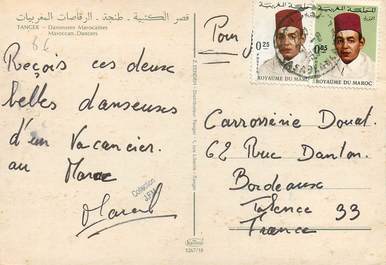 قصر الكتبية . طنجة . الرقاصات المغربيات
TANGER — Danseuses Marocaines
Moroccan Dancers
Reçois ces deux
belles danseuses
d'un Vacancier.
au Maroc
Marcel
Collection
Pour
Carrosserie Douat.
62 Rue Danton.
Bordeaux
Talence 33
France
المملكة المغربية
0.25
ROYAUME DU MAROC
المملكة المغربية
0.05
ROYAUME DU MAROC